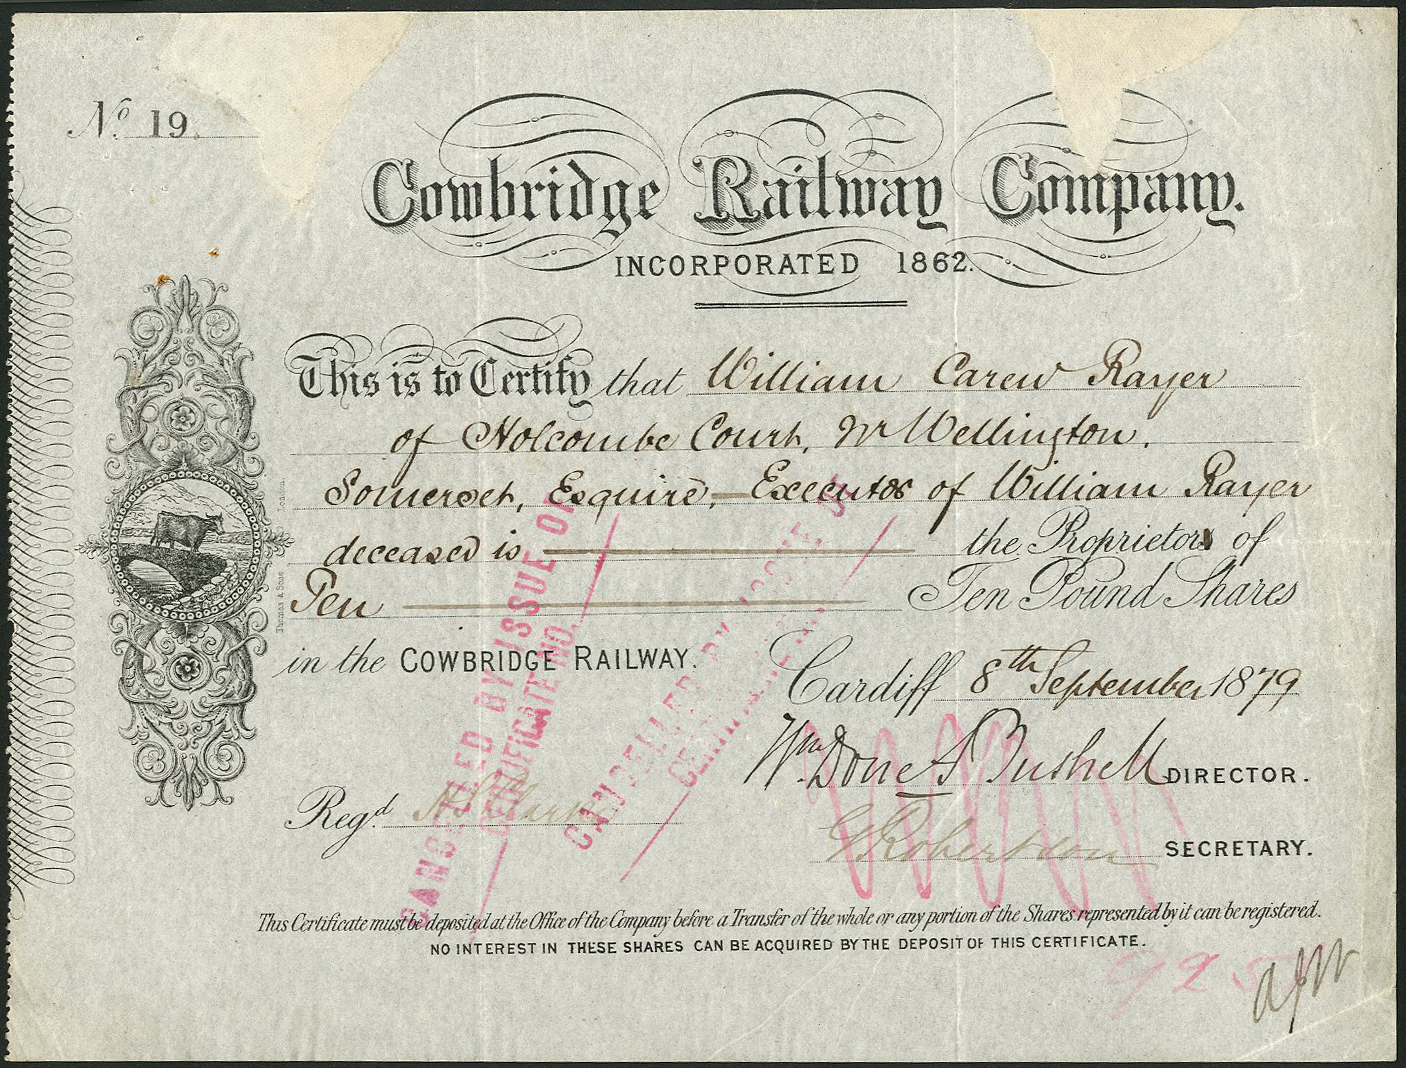 No 19
Cowbridge Railway Company.
INCORPORATED 1862.
This is to Certify that William Carew Rayer
of Holcombe Court, Nr Wellington.
Somerset, Esquire, — Executor of William Rayer
deceased is the Proprietor of
Ten Ten Pound Shares
in the COWBRIDGE RAILWAY.
Cardiff 8th September 1879
Wm Done Bushell DIRECTOR.
Regd
G Robertson SECRETARY.
CANCELLED BY ISSUE OF
CERTIFICATE NO.
CANCELLED BY ISSUE OF
This Certificate must be deposited at the Office of the Company before a Transfer of the whole or any portion of the Shares represented by it can be registered.
NO INTEREST IN THESE SHARES CAN BE ACQUIRED BY THE DEPOSIT OF THIS CERTIFICATE.